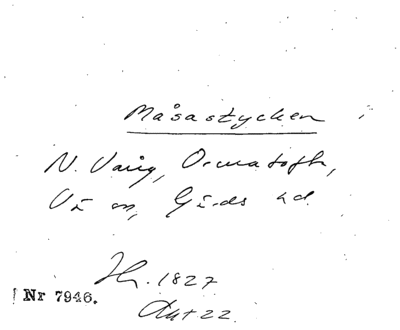 Måsastycken
N. Vång, Ormatofta,
Vä sn, Gärds hd.
1827
Akt 22.
Nr 7946.